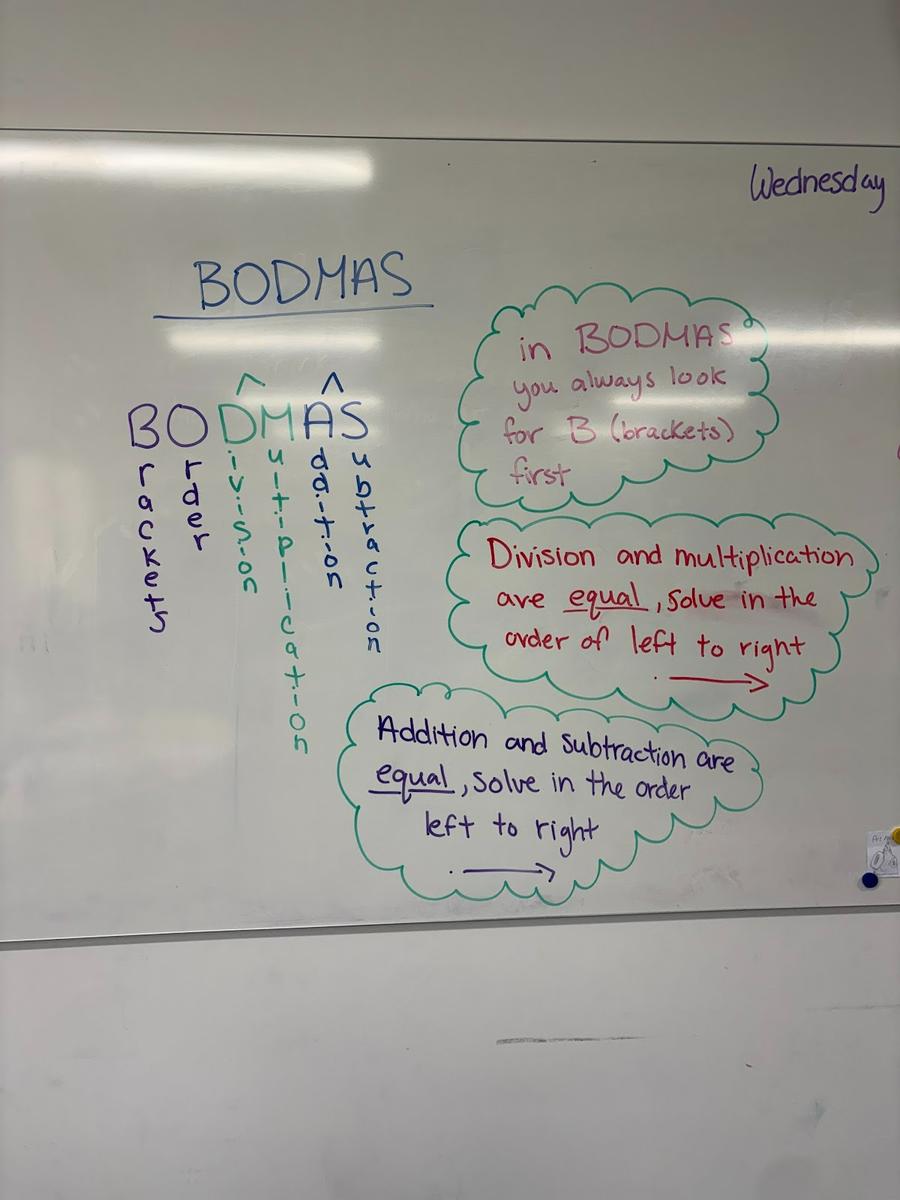 Wednesday
BODMAS
BODMAS
Brackets
Order
Division
Multiplication
Addition
Subtraction
in BODMAS
you always look
for B (brackets)
first
Division and multiplication
are equal, solve in the
order of left to right
Addition and subtraction are
equal, solve in the order
left to right